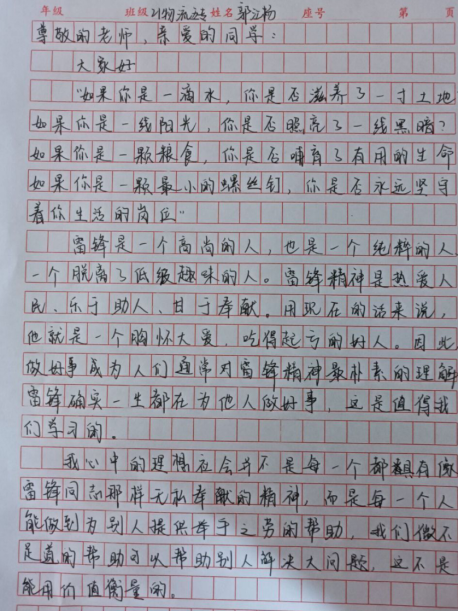 年级 班级 计物 姓名 郭江杨 座号 第 页
尊敬的老师，亲爱的同学：
大家好
“如果你是一滴水，你是否滋养了一寸土地
如果你是一线阳光，你是否照亮了一线黑暗？
如果你是一颗粮食，你是否哺育了有用的生命
如果你是一颗最小的螺丝钉，你是否永远坚守
着你生活的岗位”
雷锋是一个高尚的人，也是一个纯粹的人
一个脱离了低级趣味的人。雷锋精神是热爱人
民、乐于助人、甘于奉献。用现在的话来说，
他就是一个胸怀大爱，吃得起亏的好人。因此
做好事成为人们通常对雷锋精神最朴素的理解
雷锋确实一生都在为他人做好事，这是值得我
们学习的。
我心中的理想社会并不是每一个都具有像
雷锋同志那样无私奉献的精神，而是每一个人
能做到为别人提供举手之劳的帮助，我们微不
足道的帮助可以帮助别人解决大问题，这不是
能用价值衡量的。